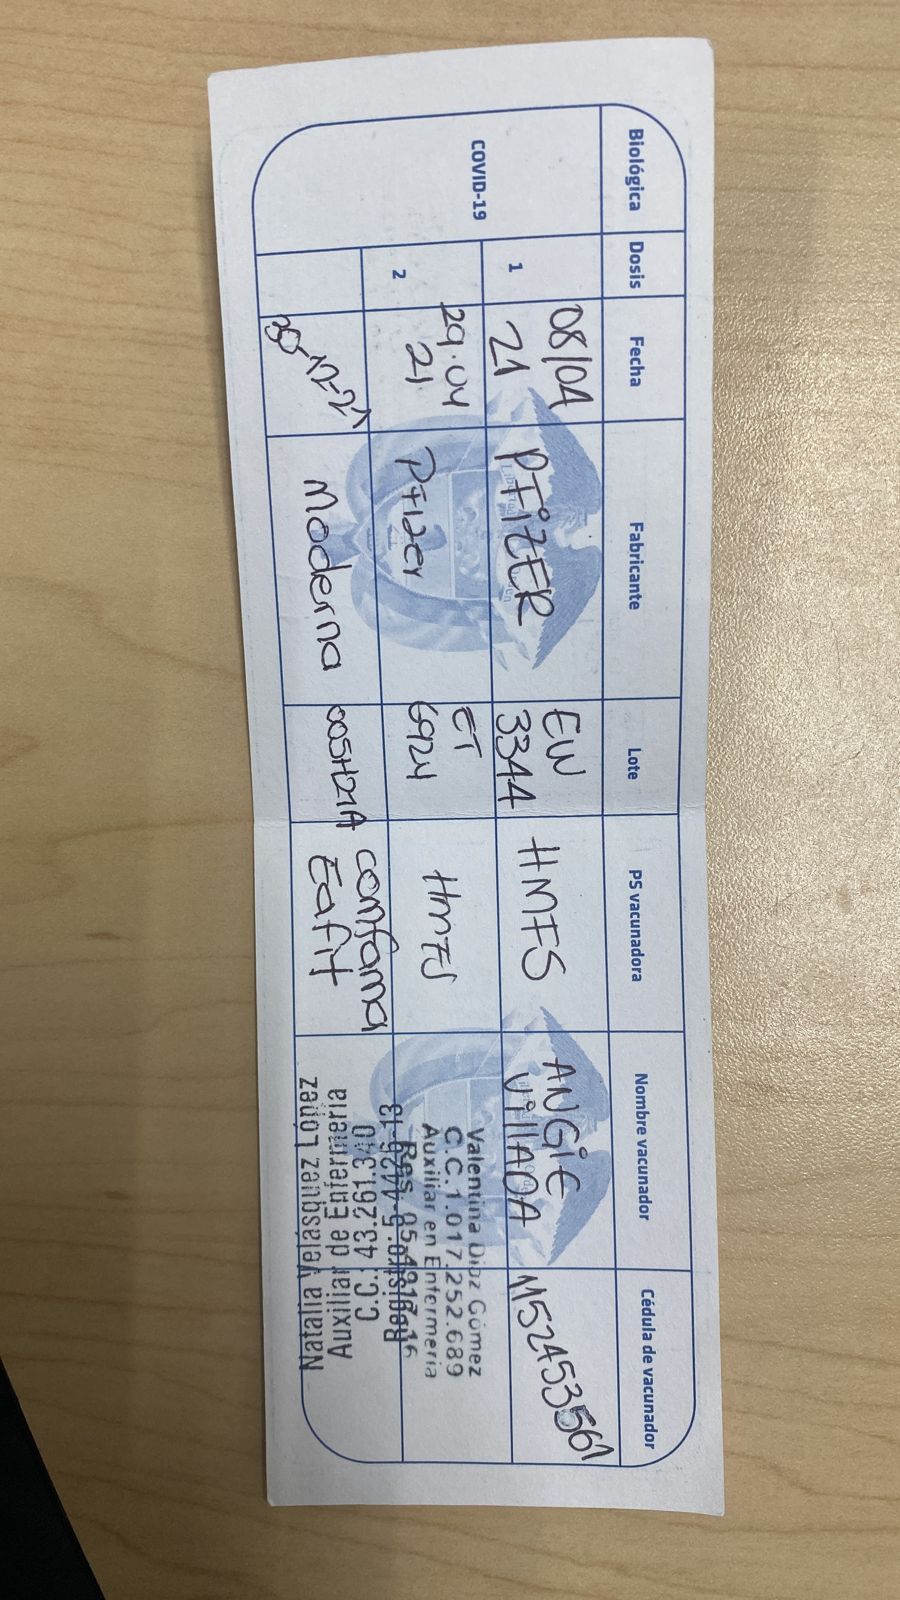 Biológica Dosis Fecha Fabricante Lote PS vacunadora Nombre vacunador Cédula de vacunador
COVID-19
1
08/04
21
PFiZER
EW
3344
HMFS
ANGiE
VillADA
2
29.04
21
Pfizer
ET
6924
HMFS
Valentina Díaz Gómez
C.C.1.017.252.689
Auxiliar en Enfermería
Moderna
005H21A
comfama
Eafit
Natalia Velásquez López
Auxiliar de Enfermería
C.C.: 43.261.340